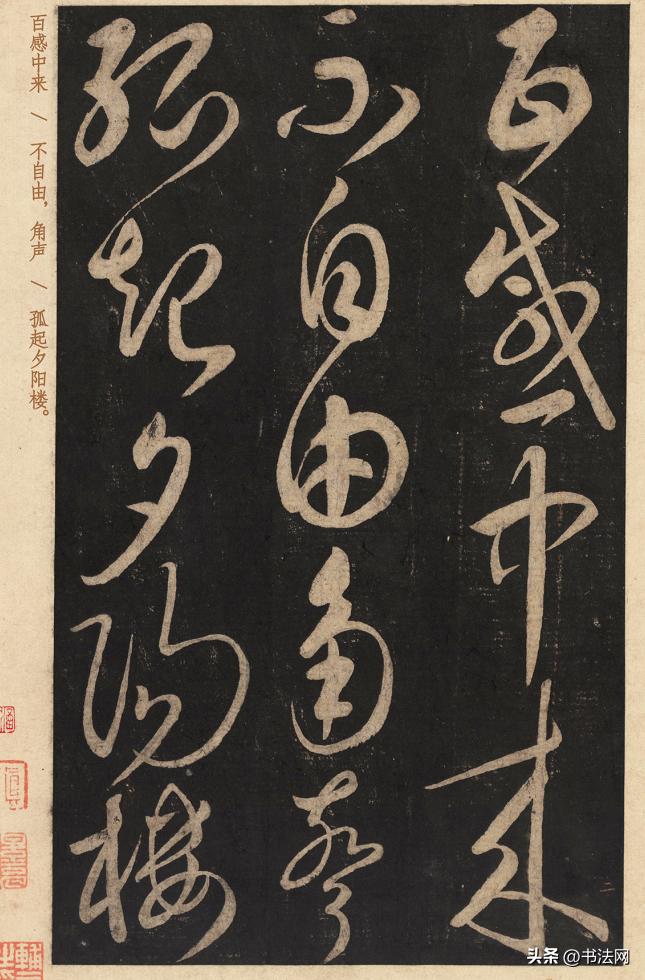 百感中来
不自由角声
孤起夕阳楼
百感中来 \ 不自由，角声 \ 孤起夕阳楼。
头条 @书法网